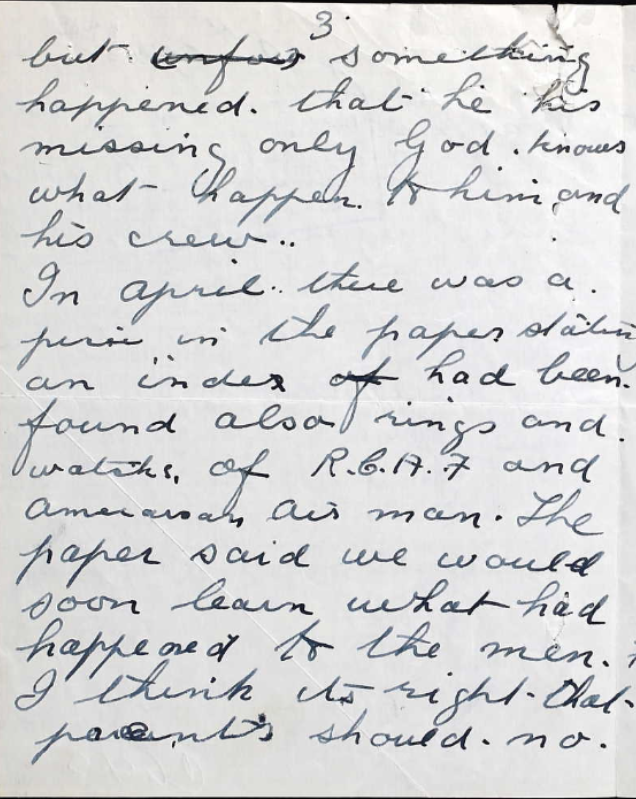 3.
but unfor something
happened. that he his
missing only God. knows
what happen. to him and
his crew..
In april.. there was a.
in the paper statin
an index of had been.
found also rings and.
watchs, of R.C.A.F and
amercaian air man. The
paper said we would
soon learn what had
happened to the men.
I think its right that
parents should. no.